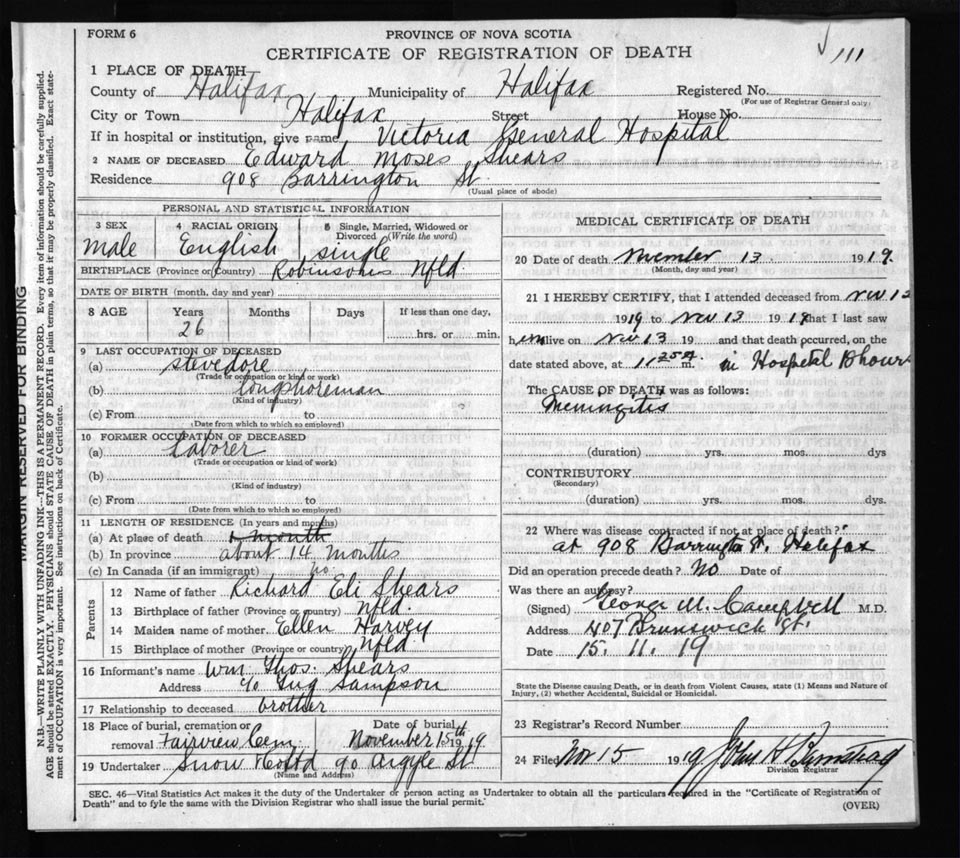 FORM 6
PROVINCE OF NOVA SCOTIA
CERTIFICATE OF REGISTRATION OF DEATH
111
1 PLACE OF DEATH
County of Halifax Municipality of Halifax Registered No.
(For use of Registrar General only)
City or Town Halifax Street House No.
If in hospital or institution, give name Victoria General Hospital
2 NAME OF DECEASED Edward Moses Shears
Residence 908 Barrington St.
(Usual place of abode)
PERSONAL AND STATISTICAL INFORMATION
3 SEX male
4 RACIAL ORIGIN English
5 Single, Married, Widowed or Divorced (Write the word) single
BIRTHPLACE (Province or Country) Robinsons Nfld.
DATE OF BIRTH (month, day and year)
8 AGE Years 26 Months Days If less than one day, hrs. or min.
9 LAST OCCUPATION OF DECEASED
(a) stevedore
(Trade or occupation or kind or work)
(b) longshoreman
(Kind of industry)
(c) From to
(Date from which to which so employed)
10 FORMER OCCUPATION OF DECEASED
(a) Laborer
(Trade or occupation or kind of work)
(b)
(Kind of industry)
(c) From to
(Date from which to which so employed)
11 LENGTH OF RESIDENCE (In years and months)
(a) At place of death month
(b) In province about 14 months
(c) In Canada (if an immigrant) no
Parents
12 Name of father Richard Eli Shears
13 Birthplace of father (Province or country) Nfld.
14 Maiden name of mother Ellen Harvey
15 Birthplace of mother (Province or country) Nfld
16 Informant's name Wm Thos. Shears
Address c/o Tug Sampson
17 Relationship to deceased brother
18 Place of burial, cremation or removal Fairview Cem. Date of burial November 15th 1919
19 Undertaker Snow & Co Ltd 90 Argyle St
(Name and Address)
MEDICAL CERTIFICATE OF DEATH
20 Date of death November 13 1919.
(Month, day and year)
21 I HEREBY CERTIFY, that I attended deceased from Nov 12
1919 to Nov 13 1919 that I last saw
him alive on Nov 13 19 and that death occurred, on the
date stated above, at m. in Hospital hours
The CAUSE OF DEATH was as follows:
Meningitis
(duration) yrs. mos. dys
CONTRIBUTORY
(Secondary)
(duration) yrs. mos. dys.
22 Where was disease contracted if not at place of death?
at 908 Barrington St. Halifax
Did an operation precede death? No Date of
Was there an autopsy?
(Signed) George M. Campbell M.D.
Address 407 Brunswick St.
Date 15. 11. 19
State the Disease causing Death, or in death from Violent Causes, state (1) Means and Nature of
Injury, (2) whether Accidental, Suicidal or Homicidal.
23 Registrar's Record Number
24 Filed Nov 15 1919 John H
Division Registrar
SEC. 46—Vital Statistics Act makes it the duty of the Undertaker or person acting as Undertaker to obtain all the particulars required in the "Certificate of Registration of
Death" and to fyle the same with the Division Registrar who shall issue the burial permit.
(OVER)
MARGIN RESERVED FOR BINDING
N.B.—WRITE PLAINLY WITH UNFADING INK—THIS IS A PERMANENT RECORD. Every item of information should be carefully supplied.
AGE should be stated EXACTLY. PHYSICIANS should STATE CAUSE OF DEATH in plain terms, so that it may be properly classified. Exact statement of OCCUPATION is very important. See instructions on back of Certificate.